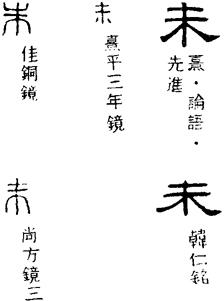 未
熹・論語・
先進
未
韓仁銘
未
熹平三年鏡
未
佳銅鏡
未
尚方鏡三